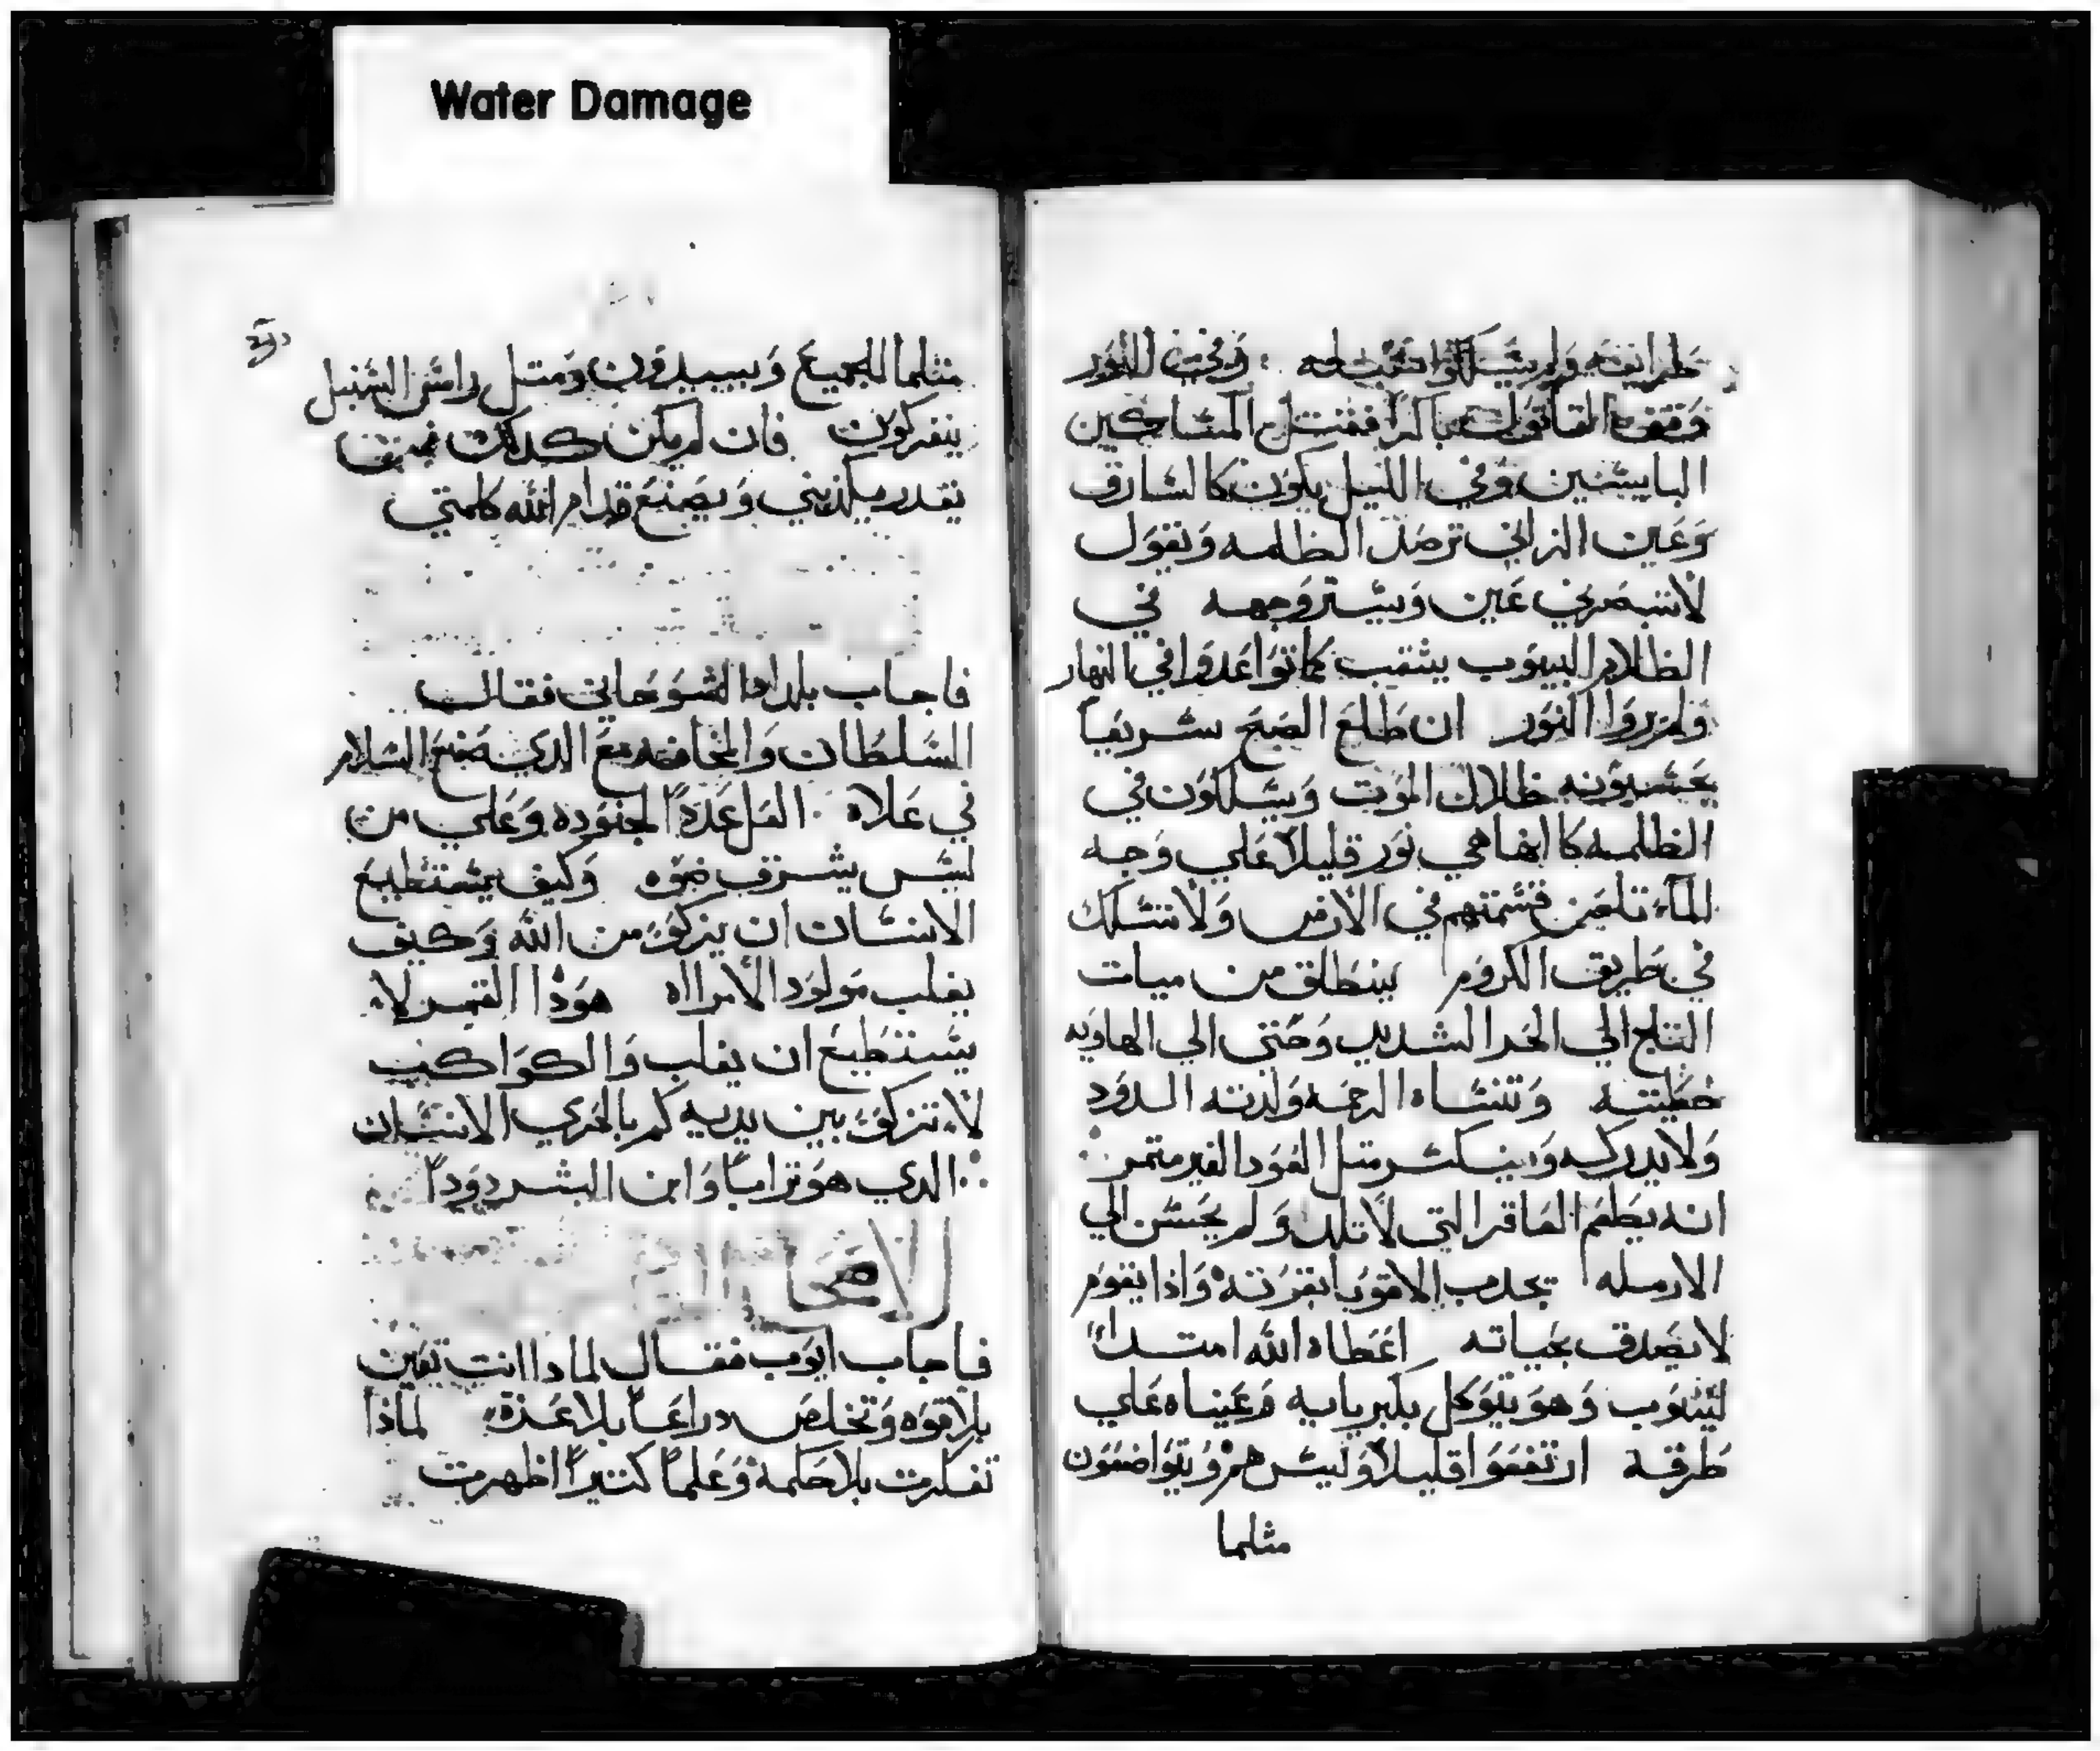 Water Damage
طرايقه ولم يسلكوا سبله وفي النور
يقوم القاتول باكرا فيقتل المساكين
البايسين وفي الليل يكون كالسارق
وعين الزاني ترصد الظلمه ويقول
لا تبصرني عين ويستر وجهه في
الظلام البيوت ينقب كما تواعدوا في النهار
ولم يروا النور ان طلع الصبح سريعا
يحسبونه ظلال الموت ويسلكون في
الظلمه كانها هي نور قليلا علي وجه
المآء تلعن قسمتهم في الارض ولا تسلك
في طريق الكروم ينطلق من ميات
التلج الي الحر الشديد وحتي الي الهاويه
خطيته وتنساه الرحمه ولدته الدود
ولا يدركه وينكسر متل العود الغير متمر
انه يطعم العاقر التي لا تلد ولم يحسن الي
الارمله يجدب الاقويا بقوته واذا يقوم
لا يصدق بحياته اعطاه الله امتداداً
ليتوب وهو يتوكل بكبريايه وعيناه علي
طرقه ارتفعوا قليلا وليس هم ويتواضعون
مثلما
مثلما الجميع ويبيدون ومتل راس السنبل
ينفركون فان لم يكن كدلك فمن
يقدر يكذبني ويضع قدام الله كلمتي
فاجاب بلداد الشوحاني فقال
السلطان والمخافه مع الدي صنع السلام
في علاه العل عدداً لجنوده وعلي من
ليس يشرق ضوه وكيف يستطيع
الانسان ان يزكوا من الله وكيف
يغلب مولود الامراه هوذا القمر لا
يستطيع ان يغلب والكواكب
لا تزكوا بين يديه كم بالحري الانسان
الدي هو تراباً وابن البشر دوداً
الاصحا
فاجاب ايوب فقال لمادا انت تعين
بلا قوه وتخلص دراعاً بلا عزة لماذا
تفكرت بلا حكمة وعلماً كتيراً اظهرت